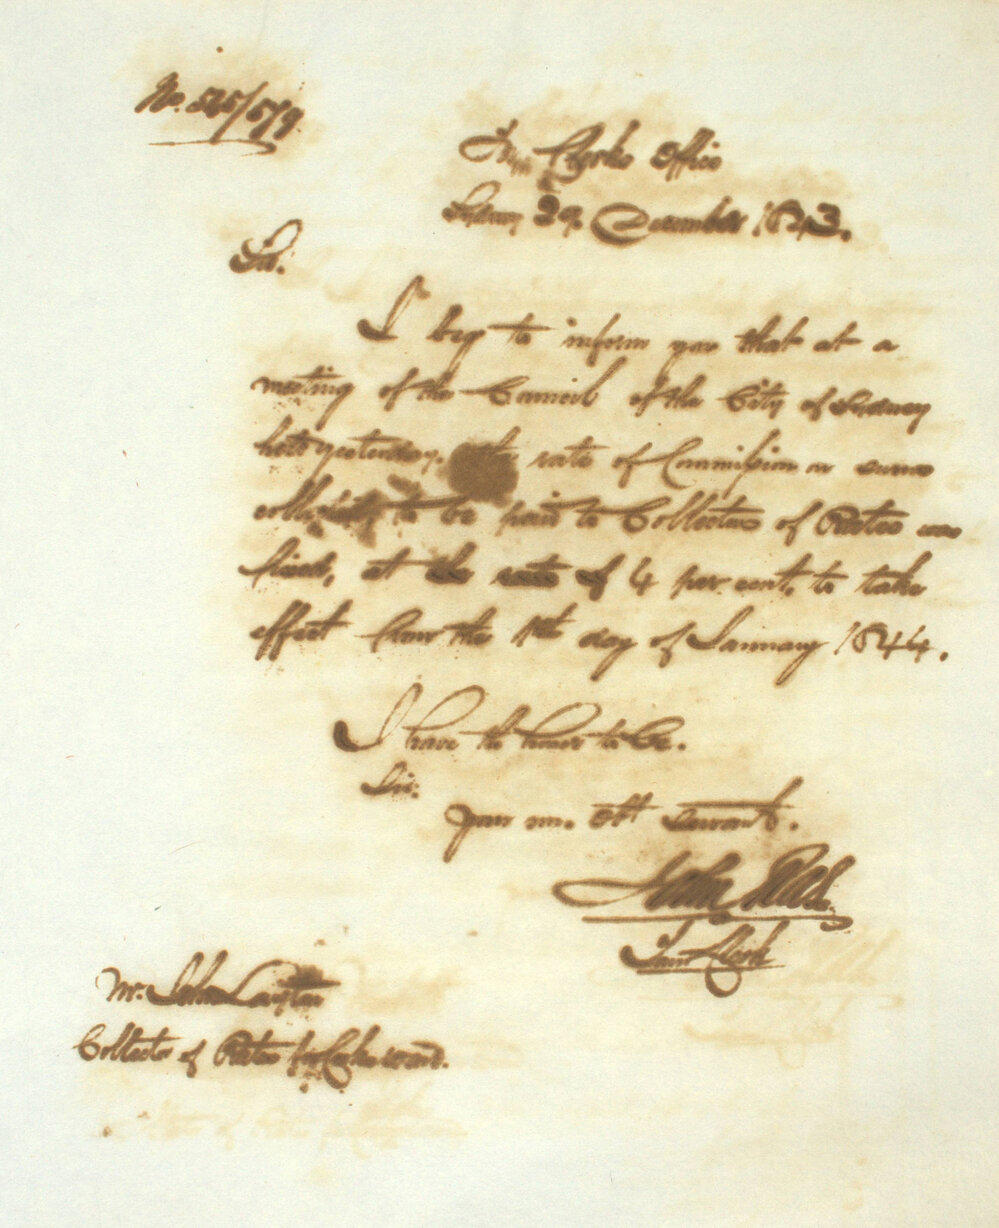 No. 545/579
Town Clerks Office
Sydney 29. December 1843.
Sir.
I beg to inform you that at a
meeting of the Council of the City of Sydney
held yesterday. the rate of Commission on sums
collected to be paid to Collectors of Rates was
fixed, at the rate of 4 per cent, to take
effect from the 1st day of January 1844.
I have the honor to be.
Sir.
your m. Obt servant.
John
Town Clerk
Mr. John
Collector of Rates for Cooke ward.